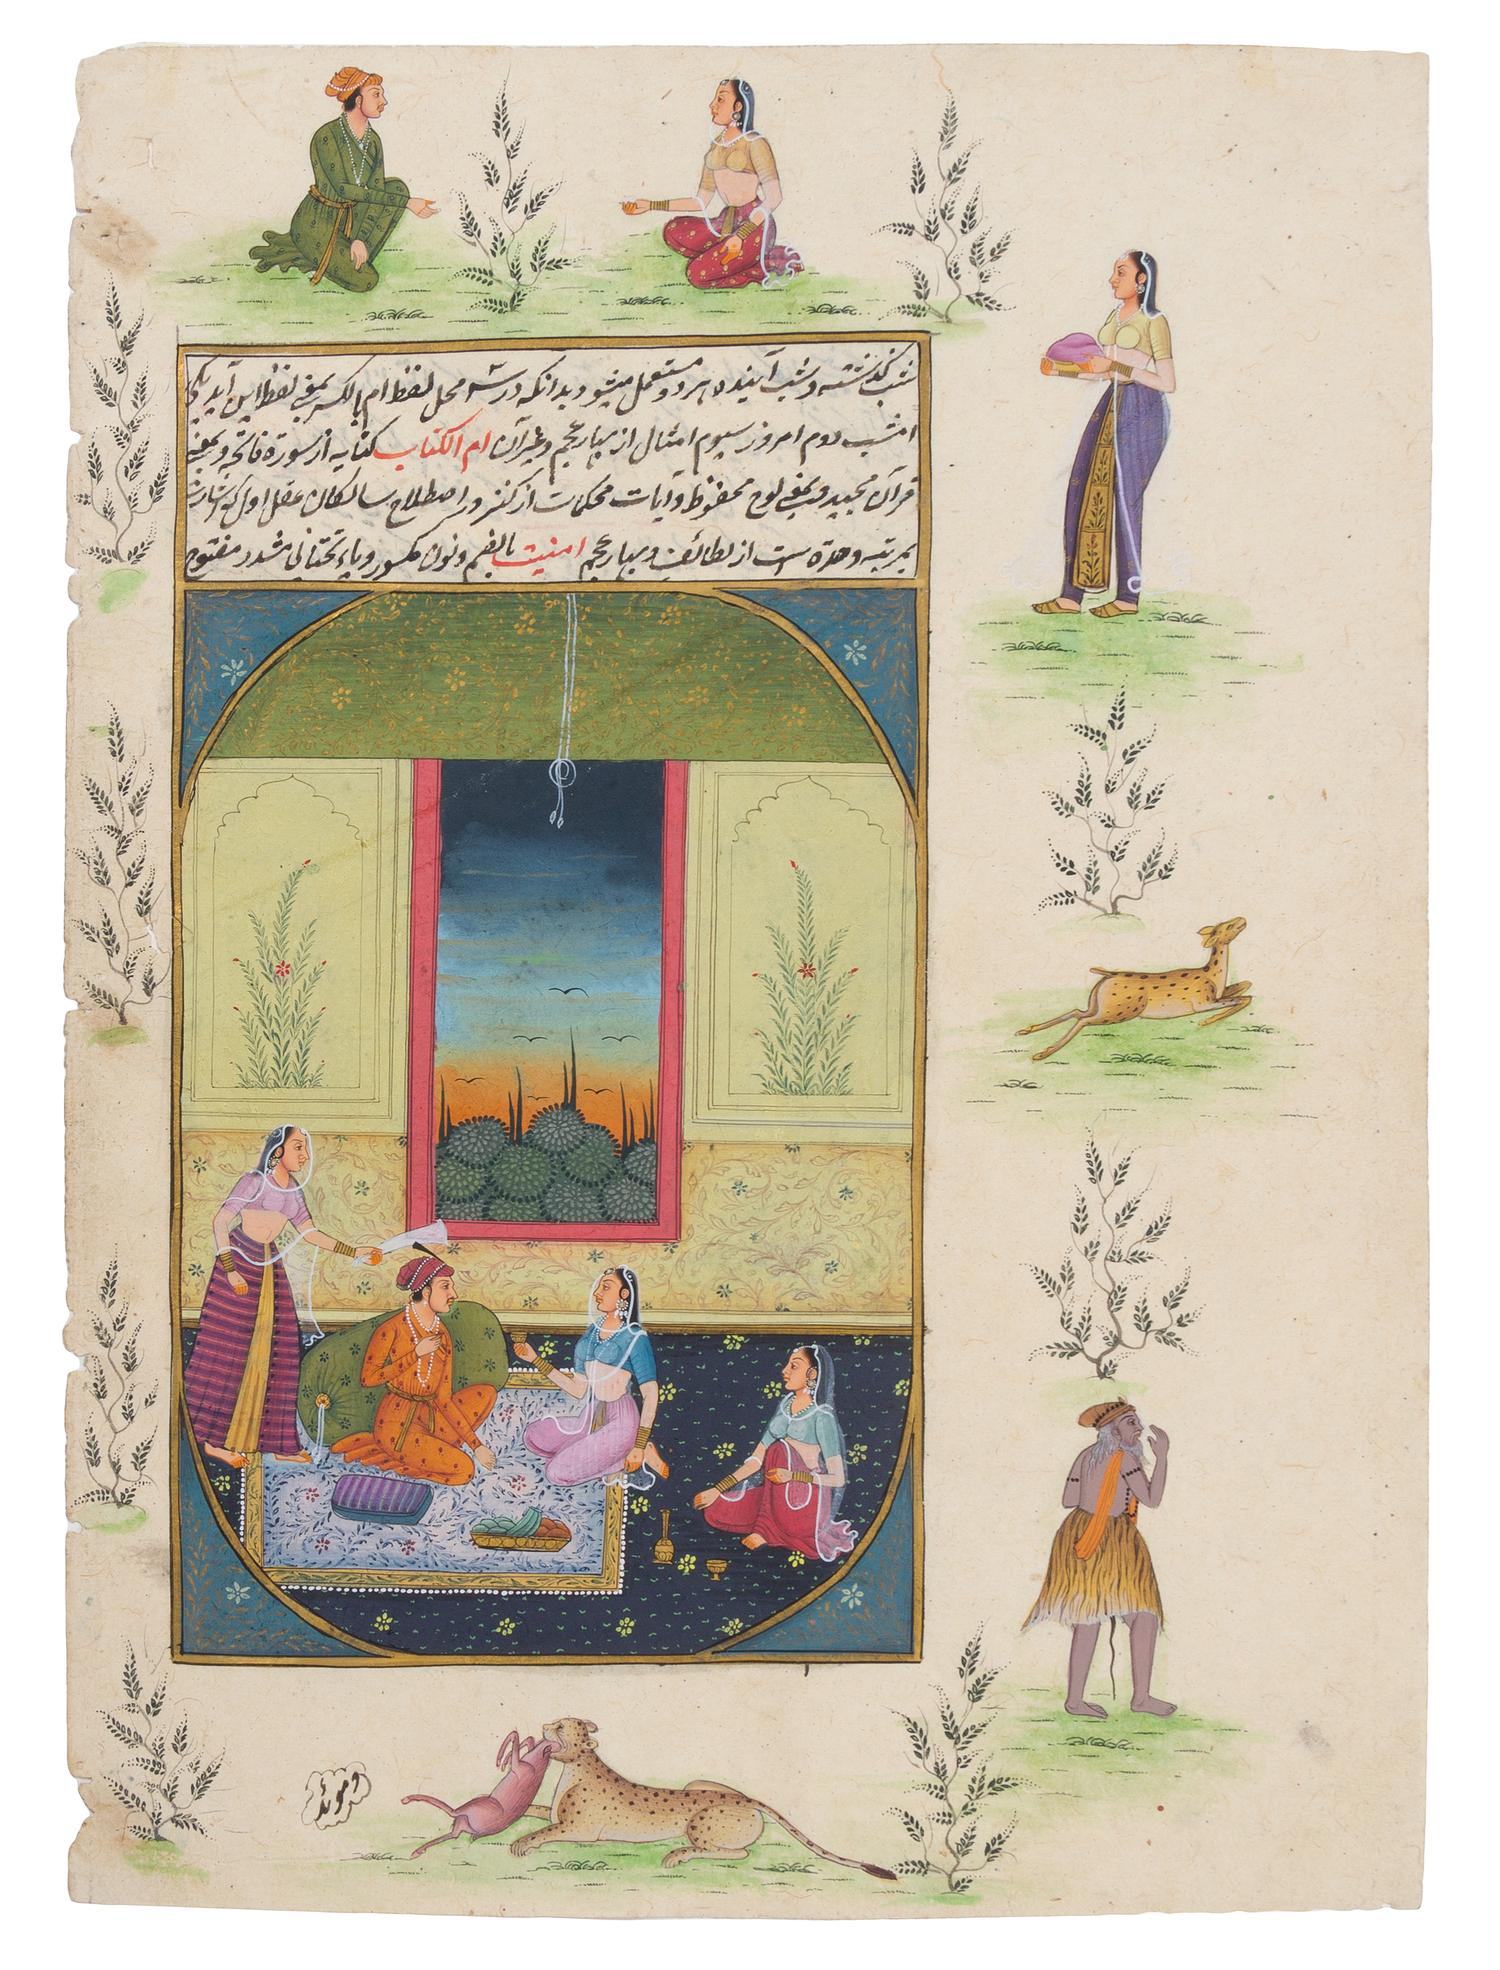 شب گذشته و شب آینده هر دو مستعمل میشود بدانکه در سه محل لفظ ام بالکسر بمعنی لفظ این آید یکی
امشب دوم امروز سیوم امثال از بهار عجم و غیر آن ام الکتاب کنایه از سورۀ فاتحه و بمعنی
قرآن مجید و بمعنی لوح محفوظ و آیات محکمات از کنز و در اصطلاح سالکان عقل اول که اشارت
بمرتبه وحدة است از لطائف و بهار عجم امنیت بالضم و نون مکسور و یاء تحتانی مشدد مفتوح
و موئد